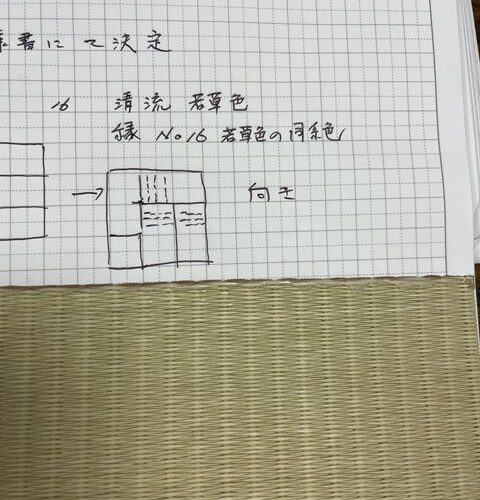 書にて決定
16 清流 若草色
縁 No16 若草色の同系色
→ 向き